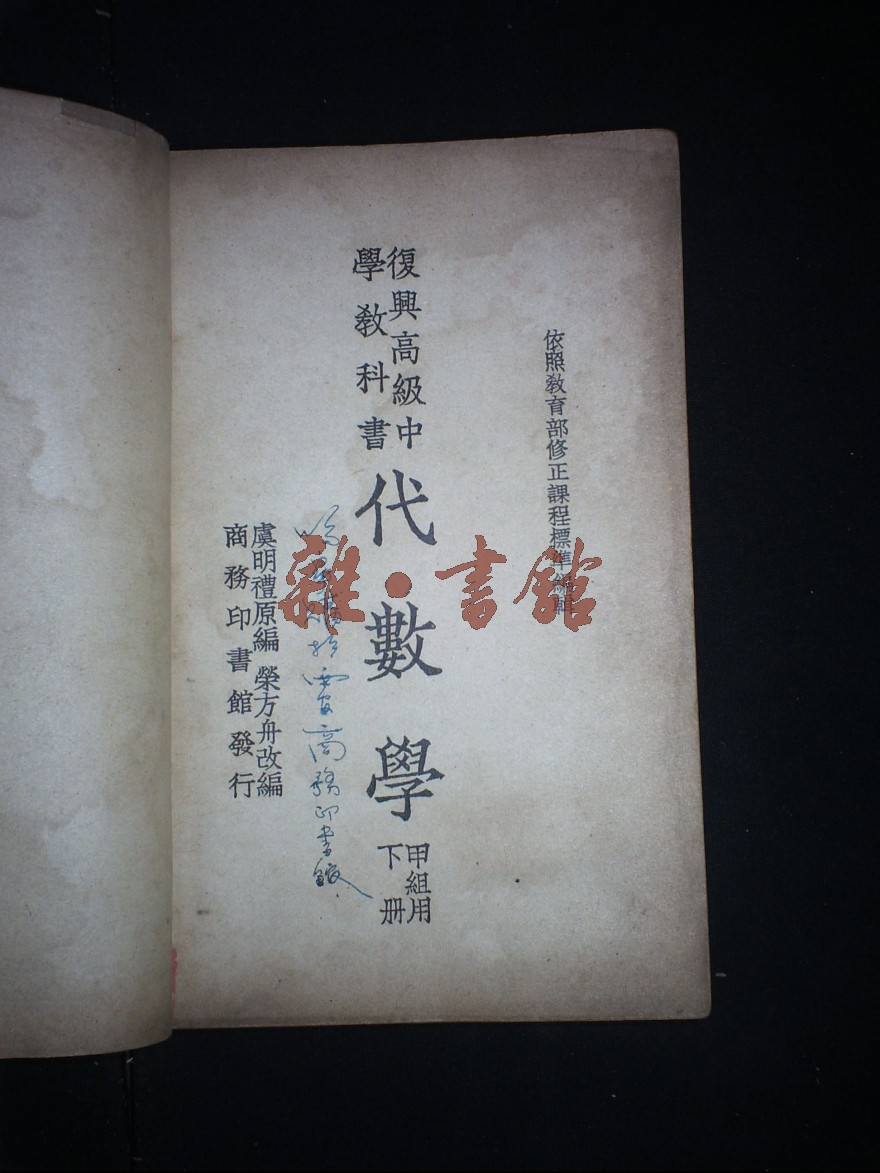 依照教育部修正課程標準編輯
復興高級中
學教科書
代數學
甲組用
下冊
商務印書館
虞明禮原編 榮方舟改編
商務印書館發行
雜·書館